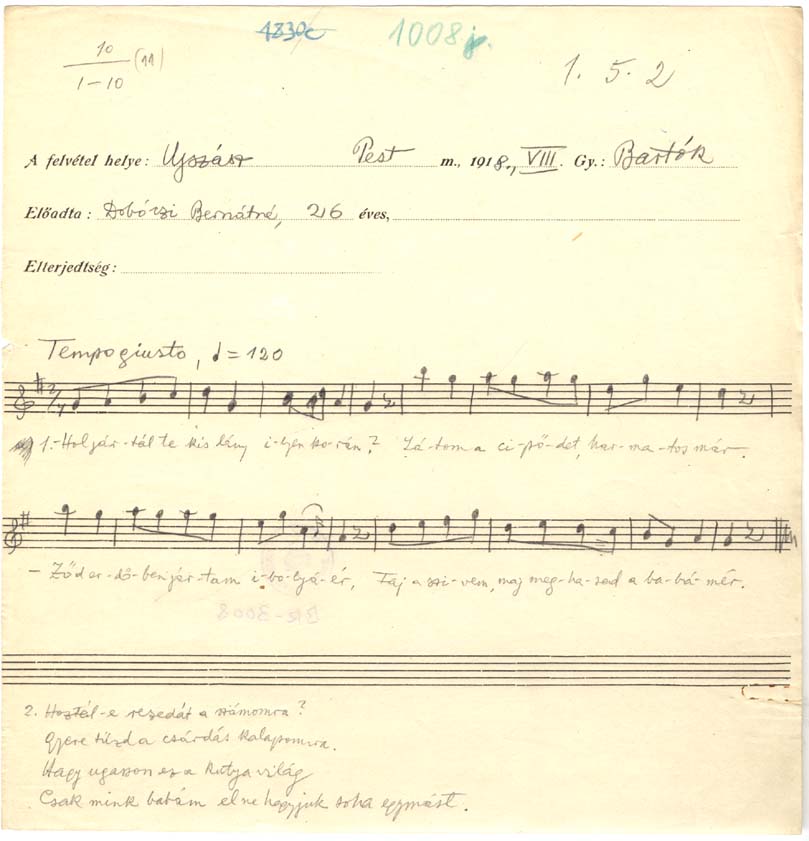 1830c 1008j.
10 (11)
1–10
1. 5. 2
A felvétel helye: Ujszász Pest m., 1918., VIII. Gy.: Bartók
Előadta: Dobóczi Bernátné, 26 éves,
Elterjedtség:
Tempo giusto, ♩= 120
2/4
1.- Hol jár-tál te kis lány i-lyen ko-rán? Lá-tom a ci-pő-det, har-ma-tos már.
- Ződ er-dő-ben jár-tam i-bo-lyá-ér, Fáj a szi-vem, maj meg-ha-sad a ba-bá-mér.
BR-3008
2. Hoztál-e rezedát a számomra?
Gyere tüzd a csárdás kalapomra.
Hagy ugasson ez a kutya világ
Csak mink babám el ne hagyjuk soha egymást.